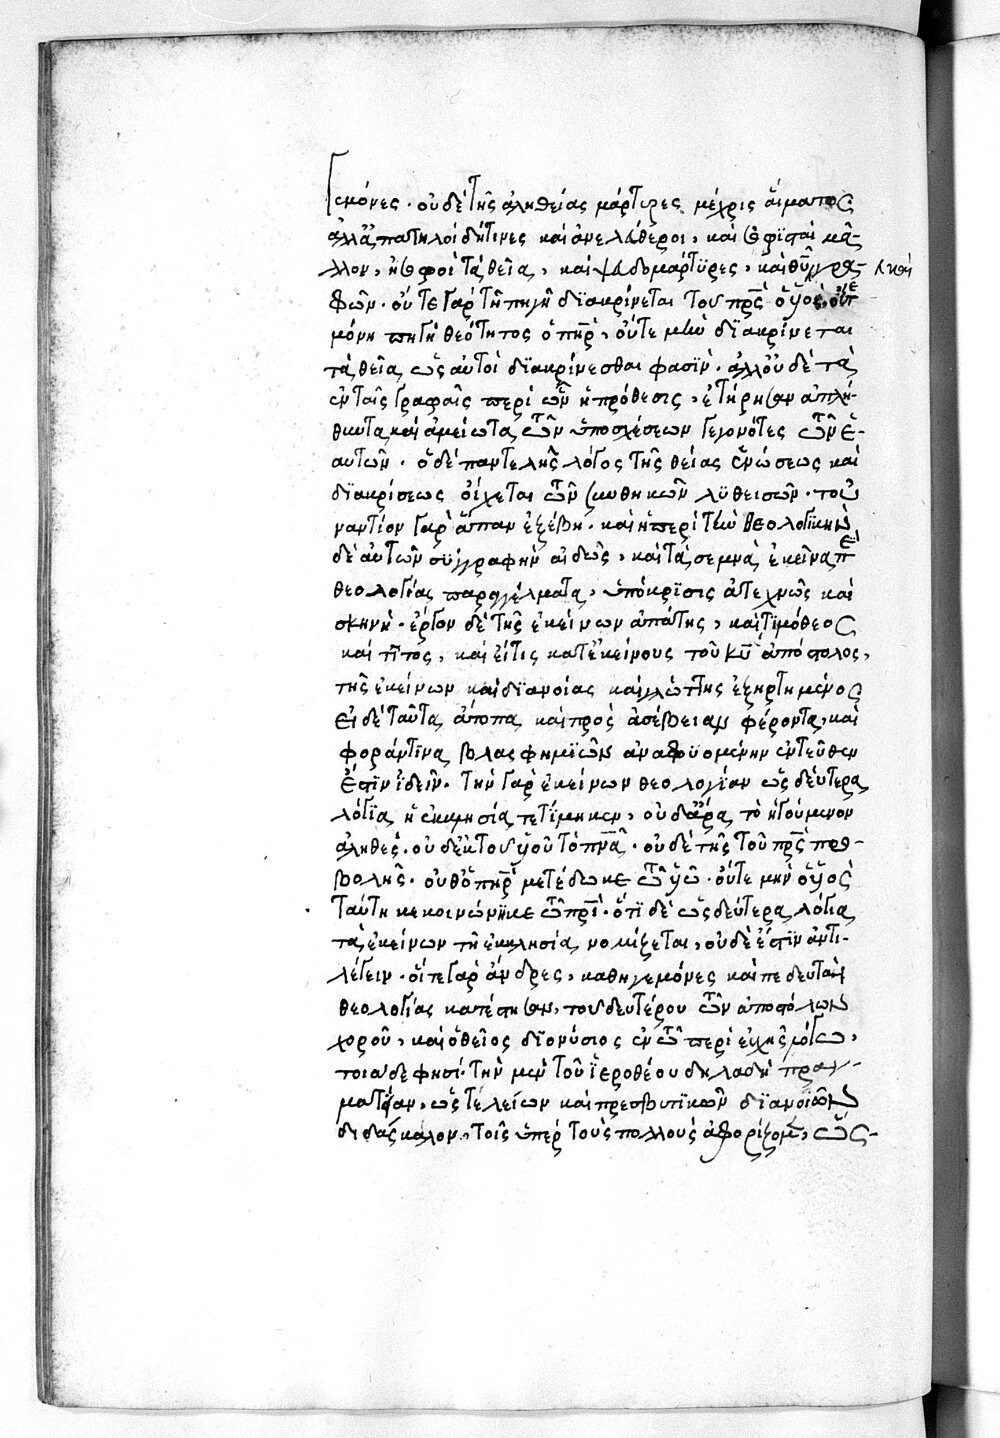 γεμόνες· οὐδὲ τῆς ἀληθείας μάρτυρες μέχρις αἵματος
ἀλλ' ἀπατηλοί δή τινες καὶ ἀνελεύθεροι, καὶ σοφισταὶ μᾶ-
λλον, ἢ σοφοὶ τὰ θεῖα, καὶ ψευδομάρτυρες, καὶ θεῖ
φῶν· οὔτε γὰρ τῆ πηγῆ διακρίνεται τοῦ πρς ὁ υἱος,
μόνη πηγὴ θεότητος ὁ πηρ, οὔτε μὴν διακρίνεται
τὰ θεῖα, ὡς αὐτοὶ διακρίνεσθαι φασὶν· ἀλλ' οὐδὲ τὰ
ἐν ταῖς γραφαῖς περὶ ὧν ἡ πρόθεσις, ἐτήρησαν ἀπλή-
θυντα καὶ ἀμείωτα τῶν ὑποσχέσεων γεγονότες τῶν ἑ-
αυτῶν· ὁ δὲ παντελὴς λόγος τῆς θείας ἑνώσεως καὶ
διακρίσεως οἴχεται τῶν συνθηκῶν λυθεισῶν· του
ναντίον γὰρ ἅπαν ἐξέβη· καὶ ἡ περὶ τὴν θεολογικὴν
δὲ αὐτῶν συγγραφὴν αἰδὼς, καὶ τὰ σεμνὰ ἐκεῖνα π
θεολογίας παραγγέλματα, ὑπόκρισις ἀτεχνῶς καὶ
σκηνή· ἔργον δὲ τῆς ἐκείνων ἀπάτης, καὶ τιμόθεος
καὶ τίτος, καὶ εἴ τις κατ' ἐκείνους τοῦ κυ ἀπόστολος,
τῆς ἐκείνων καὶ διανοίας καὶ γλώττης ἐξηρτημένος
εἰ δὲ ταῦτα ἄτοπα καὶ πρὸς ἀσέβειαν φέροντα, καὶ
φοράν τινα βλασφημιῶν ἀναφυομένην ἐντεῦθεν
ἔστιν ἰδεῖν· τὴν γὰρ ἐκείνων θεολογίαν ὡς δεύτερα
λόγια ἡ ἐκκλησία τετίμηκεν, οὐδ' ἄρα τὸ ἡγούμενον
ἀληθές· οὐδ' ἐκ τοῦ υἱοῦ τὸ πνα· οὐδὲ τῆς τοῦ πρς προ-
βολῆς· οὐθ' ὁ πηρ μετέδωκε τῶ υἱῶ· οὔτε μὴν ὁ υἱὸς
ταύτη κεκοινώνηκε τῶ πρι· ὅτι δὲ ὡς δεύτερα λόγια
τὰ ἐκείνων τῆ ἐκκλησία νομίζεται, οὐδὲ ἔστιν ἀντι-
λέγειν· οἵ τε γὰρ ἄνδρες, καθηγεμόνες καὶ πεδευταὶ
θεολογίας κατέστησαν, τοῦ δευτέρου τῶν ἀποστόλων
χοροῦ, καὶ ὁ θεῖος διονύσιος ἐν τῶ περὶ εὐχῆς λόγω,
τοιαῦδε φησί· τὴν μὲν τοῦ ἱεροθέου δηλαδὴ πραγ-
ματείαν, ὡς τελείων καὶ πρεσβυτικῶν διανοιῶν
διδάσκαλον, τοῖς ὑπὲρ τοὺς πολλοὺς ἀφορίζομεν, ὥς-